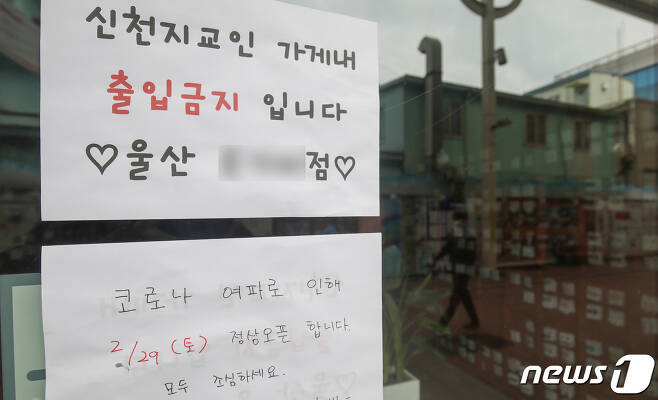 신천지교인 가게내
출입금지 입니다
♡울산 점♡
코로나 여파로 인해
2/29 (토) 정상오픈 합니다.
모두 조심하세요.
news1